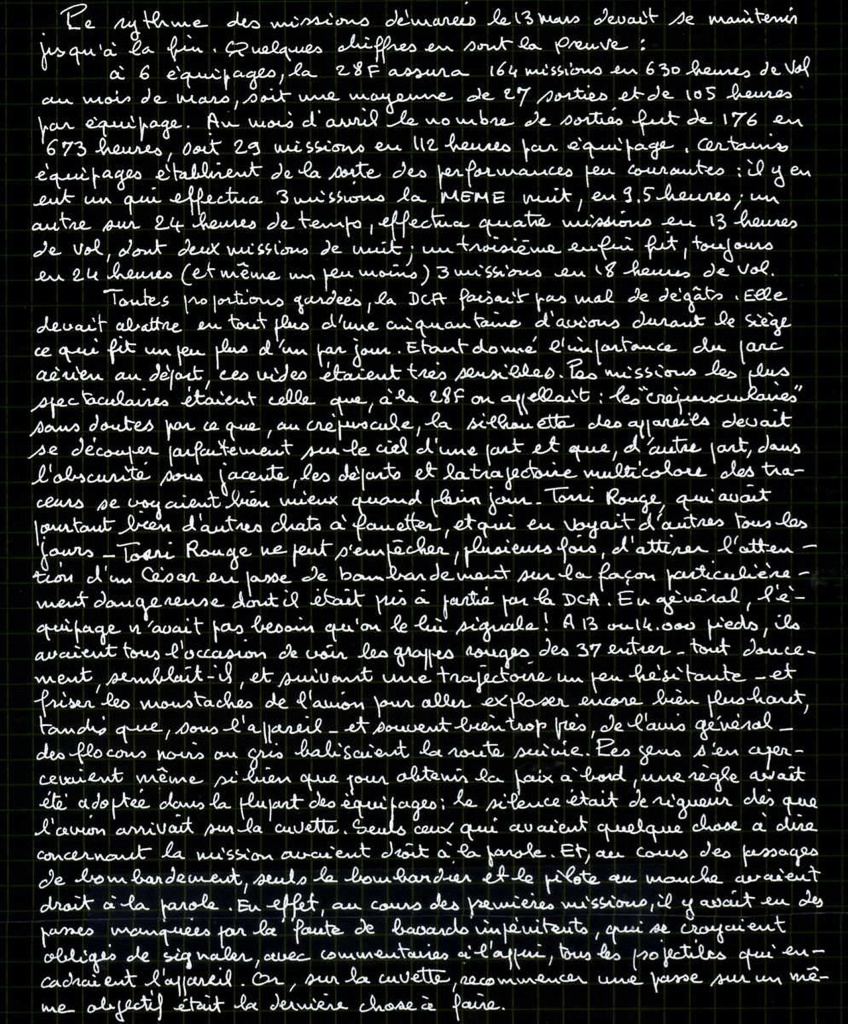 Le rythme des missions démarées le 13 mars devait se maintenir
jusqu'à la fin. Quelques chiffres en sont la preuve :
à 6 équipages, la 28F assura 164 missions en 630 heures de vol
au mois de mars, soit une moyenne de 27 sorties et de 105 heures
par équipage. Au mois d'avril le nombre de sorties fut de 176 en
673 heures, soit 29 missions en 112 heures par équipage. Certains
équipages établirent de la sorte des performances peu courantes : il y en
eut un qui effectua 3 missions la MEME nuit, en 9.5 heures ; un
autre sur 24 heures de temps, effectua quatre missions en 13 heures
de vol, dont deux missions de nuit ; un troisième enfin fit, toujours
en 24 heures (et même un peu moins) 3 missions en 18 heures de vol.
Toutes proportions gardées, la DCA faisait pas mal de dégâts. Elle
devait abattre en tout plus d'une cinquantaine d'avions durant le siège
ce qui fit un peu plus d'un par jour. Etant donné l'importance du parc
aérien au départ, ces vides étaient très sensibles. Les missions les plus
spectaculaires étaient celle que, à la 28F on appellait : les "crépusculaires"
sans doutes par ce que, au crépuscule, la silhouette des appareils devait
se découper parfaitement sur le ciel d'une part et que, d'autre part, dans
l'obscurité sous jacente, les départs et la trajectoire multicolore des tra-
ceurs se voyaient bien mieux quand plein jour - Torri Rouge, qui avait
pourtant bien d'autres chats à fouetter, et qui en voyait d'autres tous les
jours - Torri Rouge ne peut s'empêcher, plusieurs fois, d'attirer l'atten-
tion d'un César en passe de bombardement sur la façon particulière-
ment dangereuse dont il était pris à partie par la DCA. En général, l'é-
quipage n'avait pas besoin qu'on le lui signale ! A 13 ou 14.000 pieds, ils
avaient tous l'occasion de voir les grappes rouges des 37 entrer - tout douce-
ment, semblait-il, et suivant une trajectoire un peu hésitante - et
friser les moustaches de l'avion pour aller exploser encore bien plus haut,
tandis que, sous l'appareil - et souvent bien trop près, de l'avis général -
des flocons noirs ou gris balisaient la route suivie. Les gens s'en aper-
cevaient même si bien que pour obtenir la paix à bord, une règle avait
été adoptée dans la plupart des équipages : le silence était de rigueur dès que
l'avion arrivait sur la cuvette. Seuls ceux qui avaient quelque chose à dire
concernant la mission avaient droit à la parole. Et, au cours des passages
de bombardement, seuls le bombardier et le pilote au manche avaient
droit à la parole. En effet, au cours des premières missions, il y avait eu des
passes manquées par la faute de bavards impénitents, qui se croyaient
obligés de signaler, avec commentaires à l'appui, tous les projectiles qui en-
cadraient l'appareil. Or, sur la cuvette, recommencer une passe sur un mê-
me objectif était la dernière chose à faire.